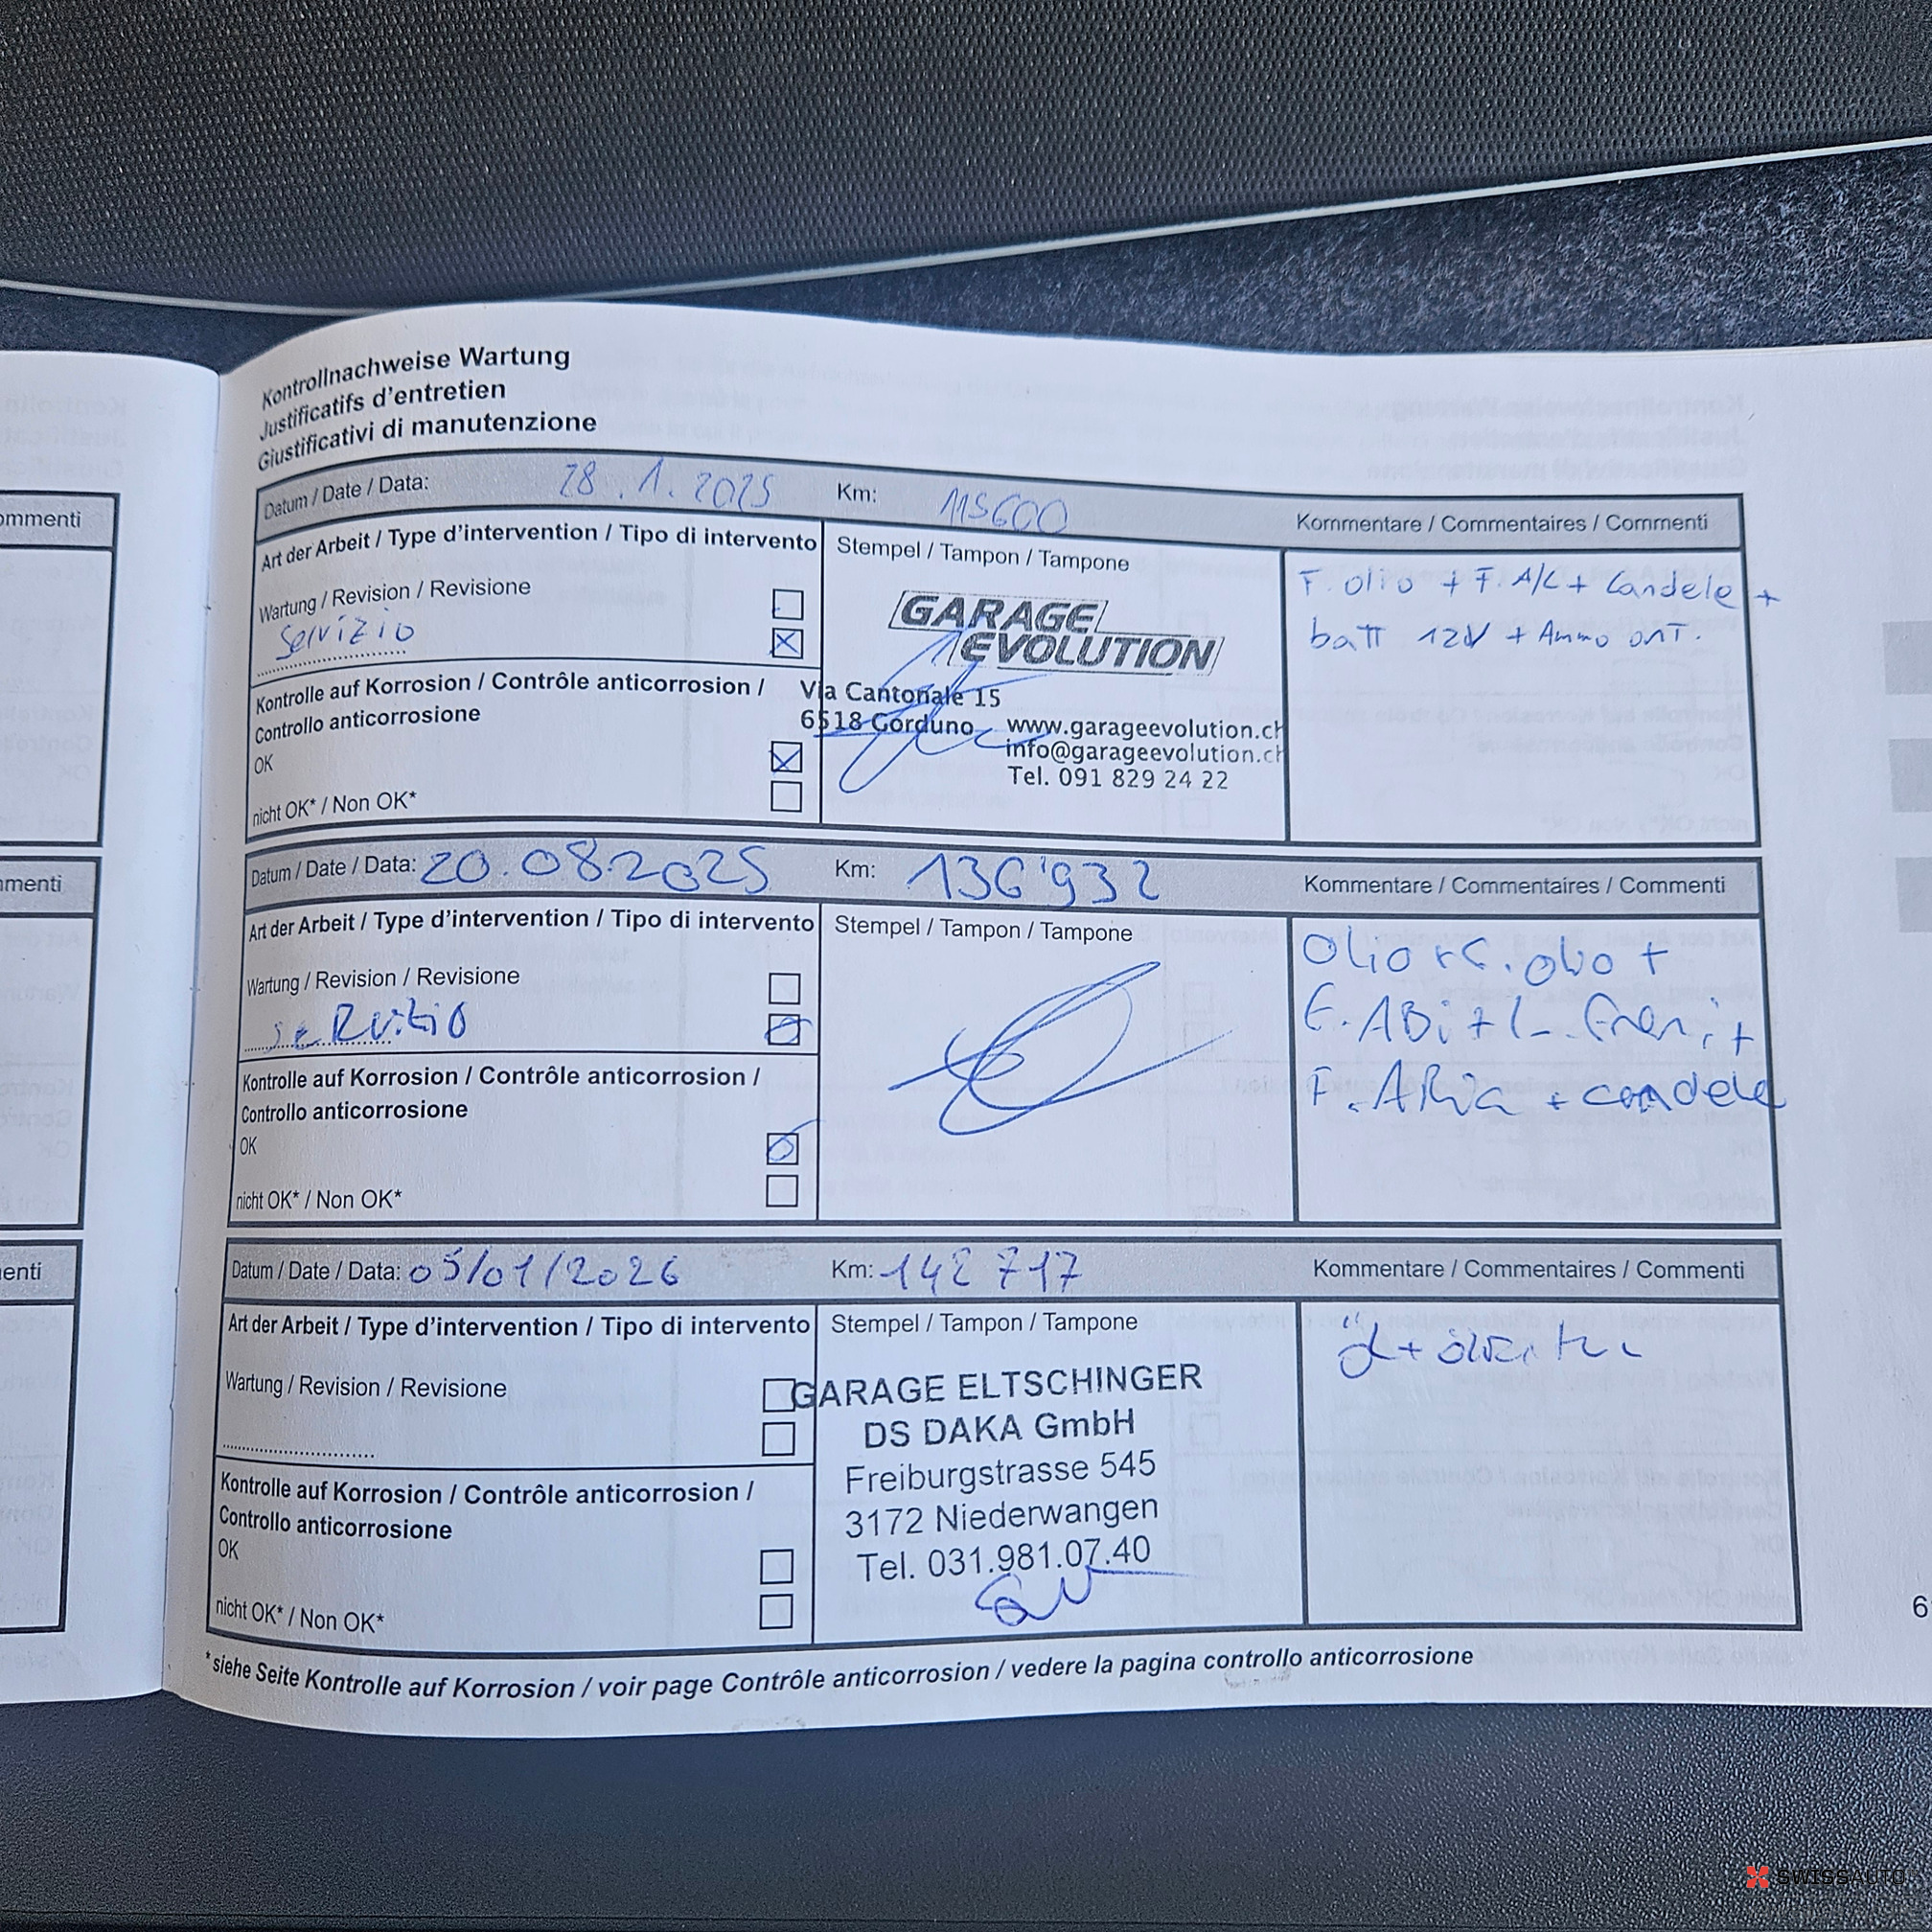 Kontrollnachweise Wartung
Justificatifs d'entretien
Giustificativi di manutenzione
Datum / Date / Data: 28.1.2025 Km: 115600 Kommentare / Commentaires / Commenti
Art der Arbeit / Type d'intervention / Tipo di intervento
Stempel / Tampon / Tampone
Wartung / Revision / Revisione
Servizio
Kontrolle auf Korrosion / Contrôle anticorrosion /
Controllo anticorrosione
OK
nicht OK* / Non OK*
GARAGE
EVOLUTION
Via Cantonale 15
6518 Gorduno www.garageevolution.ch
info@garageevolution.ch
Tel. 091 829 24 22
F. olio + F. A/C + Candele +
batt 12V + Ammo ant.
Datum / Date / Data: 20.08.2025 Km: 136'932 Kommentare / Commentaires / Commenti
Art der Arbeit / Type d'intervention / Tipo di intervento
Stempel / Tampon / Tampone
Wartung / Revision / Revisione
servitio
Kontrolle auf Korrosion / Contrôle anticorrosion /
Controllo anticorrosione
OK
nicht OK* / Non OK*
Olio + olio +
F. ABi +
F. ARia + candele
Datum / Date / Data: 05/01/2026 Km: 142 717 Kommentare / Commentaires / Commenti
Art der Arbeit / Type d'intervention / Tipo di intervento
Stempel / Tampon / Tampone
Wartung / Revision / Revisione
Kontrolle auf Korrosion / Contrôle anticorrosion /
Controllo anticorrosione
OK
nicht OK* / Non OK*
GARAGE ELTSCHINGER
DS DAKA GmbH
Freiburgstrasse 545
3172 Niederwangen
Tel. 031.981.07.40
öl +
*siehe Seite Kontrolle auf Korrosion / voir page Contrôle anticorrosion / vedere la pagina controllo anticorrosione
ommenti
nmenti
enti
6
SWISSAUTO